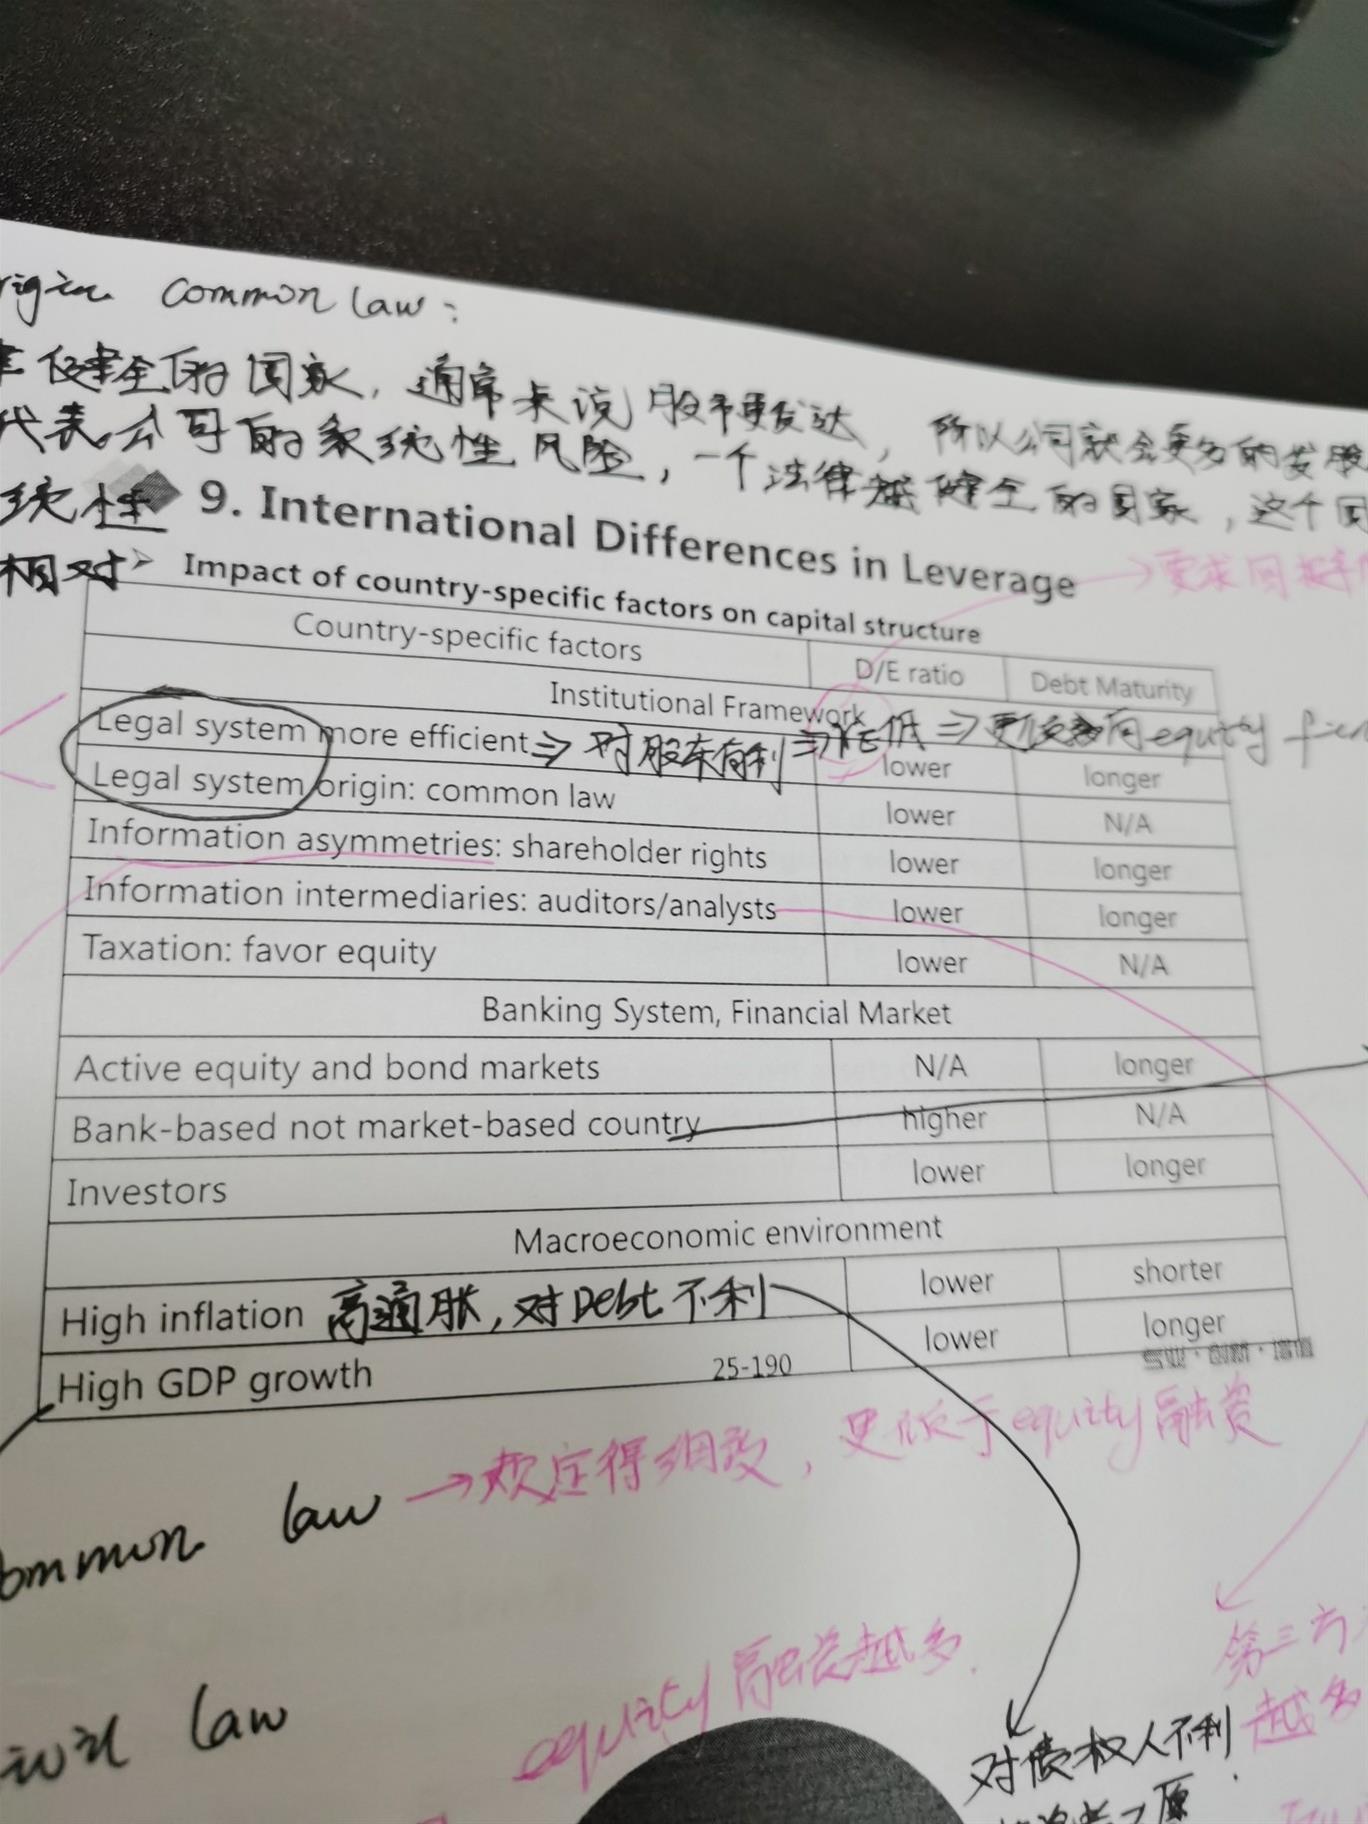 common law:
健全的国家，通常来说股市更发达，所以公司就会更多的发股
代表公司的系统性风险，一个法律越健全的国家，这个国
统性
9. International Differences in Leverage
相对
Impact of country-specific factors on capital structure
Country-specific factors D/E ratio Debt Maturity
Institutional Framework
Legal system more efficient ⇒ 对股东有利 ⇒ 低 ⇒ equity lower longer
Legal system origin: common law lower N/A
Information asymmetries: shareholder rights lower longer
Information intermediaries: auditors/analysts lower longer
Taxation: favor equity lower N/A
Banking System, Financial Market
Active equity and bond markets N/A longer
Bank-based not market-based country higher N/A
Investors lower longer
Macroeconomic environment
High inflation 高通胀，对Debt不利 lower shorter
High GDP growth lower longer
25-190
专业·创新·增值
law → 规定得细致，更偏于equity融资
equity融资越多
第三方
越多
law
对债权人不利